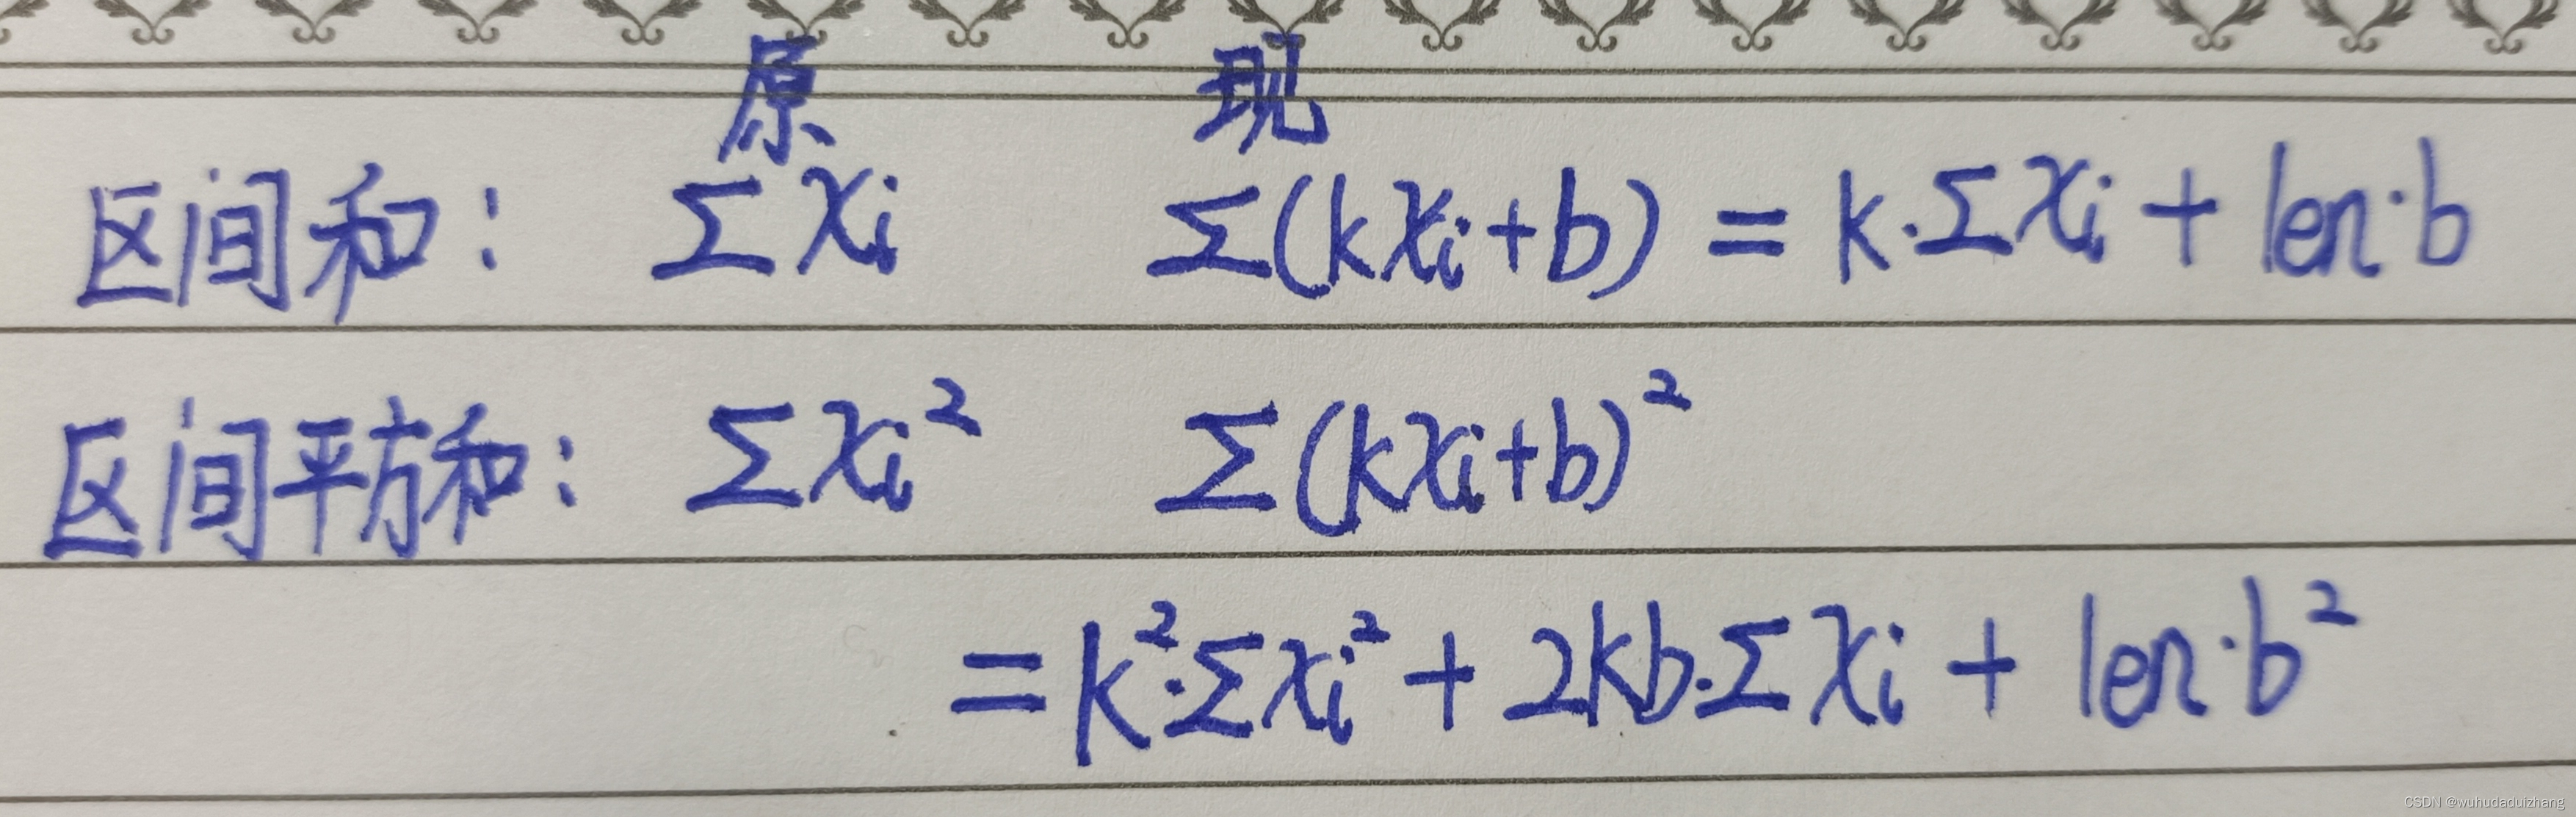 原 现
区间和: Σxi Σ(kxi+b) = k·Σxi + len·b
区间平方和: Σxi² Σ(kxi+b)²
= k²·Σxi² + 2kb·Σxi + len·b²
CSDN @wuhudaduizhang